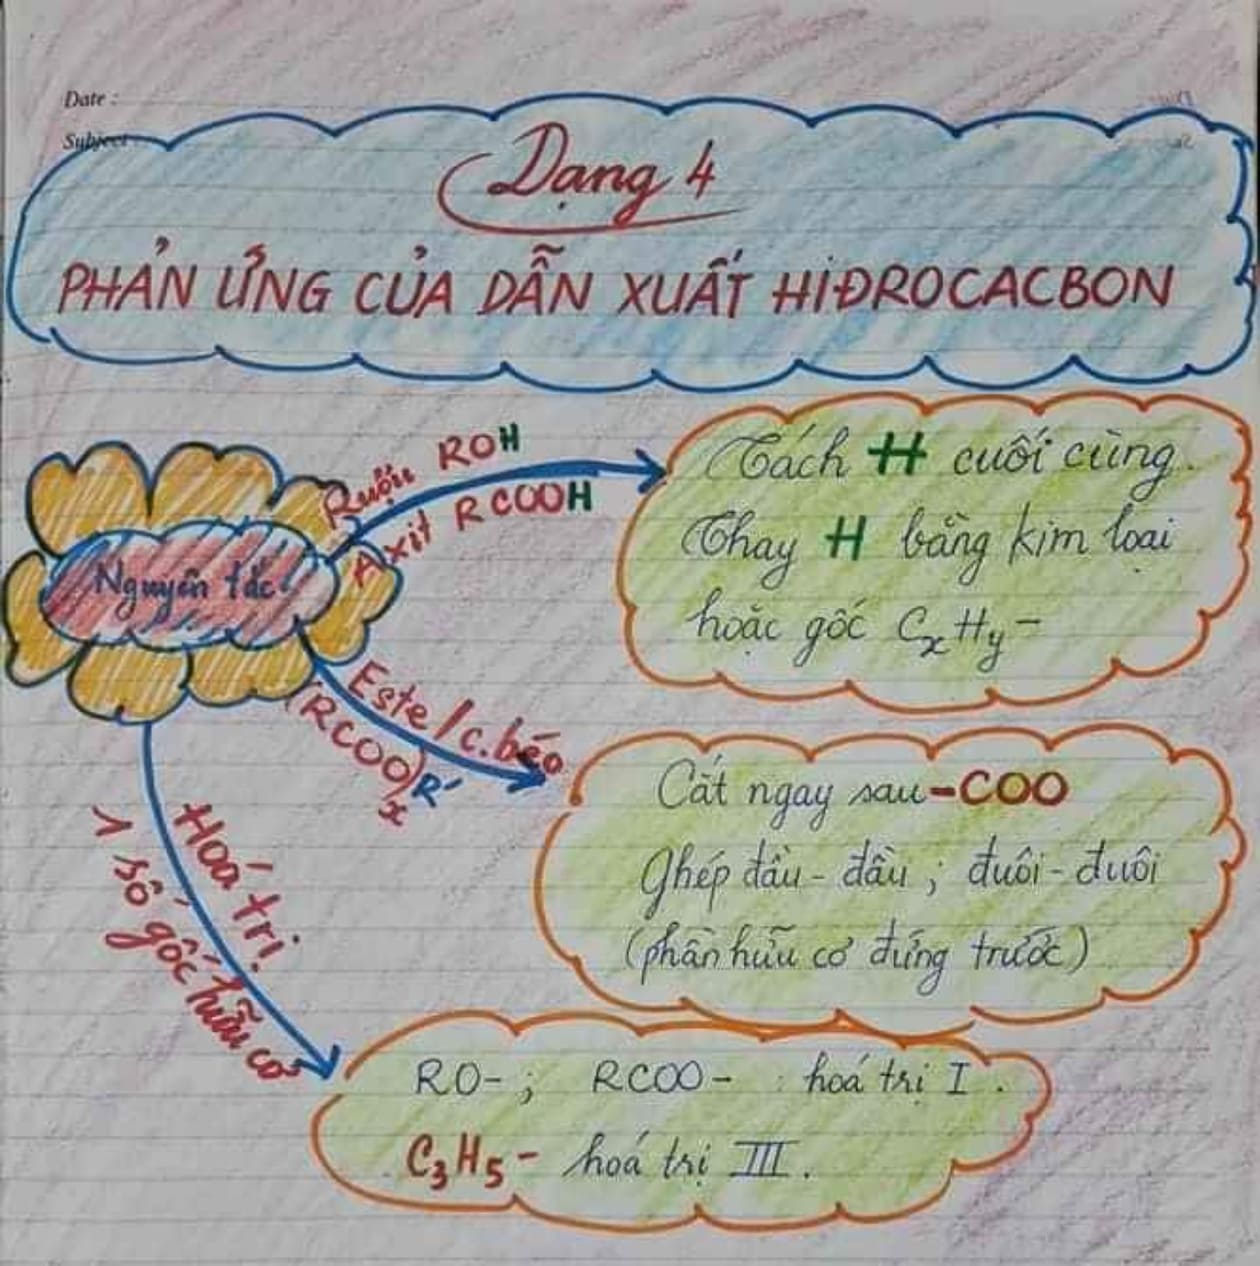 Date :
Subject :
Dạng 4
PHẢN ỨNG CỦA DẪN XUẤT HIĐROCACBON
Nguyên tắc
Rượu ROH
Axit RCOOH
Tách H cuối cùng.
Thay H bằng kim loại
hoặc gốc CxHy-
Este/c.béo
(RCOO)xR'
Cắt ngay sau -COO
Ghép đầu - đầu ; đuôi - đuôi
(phần hữu cơ đứng trước)
Hoá trị
1 số gốc hữu cơ
RO- ; RCOO- : hoá trị I .
C3H5- hoá trị III .